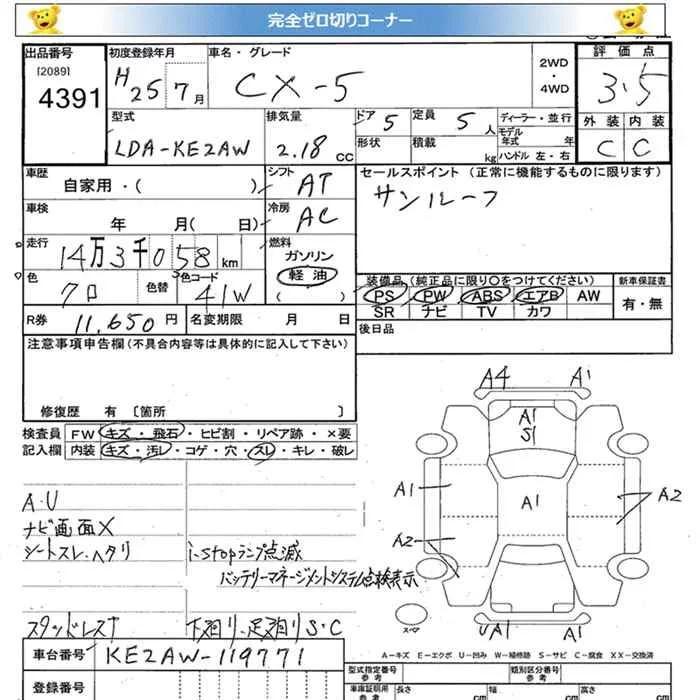 完全ゼロ切りコーナー
出品番号 [2089] 4391
初度登録年月 H25 7月
車名・グレード CX-5
2WD・4WD
評価点 3.5
外装 C 内装 C
型式 LDA-KE2AW
排気量 2.18 cc
ドア 5 形状
定員 5人 積載 kg
ディーラー・並行
モデル年式 年
ハンドル 左・右
車歴 自家用・( )
シフト AT
セールスポイント (正常に機能するものに限ります)
サンルーフ
車検 年 月( 日)
冷房 AC
走行 14万3千058 km
燃料 ガソリン 軽油 ( )
色 クロ 色替 色コード 41W
装備品 (純正品に限り○をつけてください)
PS PW ABS エアB AW
SR ナビ TV カワ
新車保証書 有・無
R券 11,650円 名変期限 月 日
後日品
注意事項申告欄 (不具合内容等は具体的に記入して下さい)
修復歴 有 [箇所 ]
検査員記入欄
FW キズ・飛石・ヒビ割・リペア跡・×要
内装 キズ・汚レ・コゲ・穴・スレ・キレ・破レ
A4 A1
A1
S1
A1 A1 A2
A2
A.U
ナビ画面X
シートスレ、ヘタリ i-stopランプ点滅
バッテリーマネージメントシステム点検表示
スタッドレス 下廻り、足廻りS・C
スペア
UA1 A1
A－キズ E－エクボ U－凹み W－補修跡 S－サビ C－腐食 XX－交換済
車台番号 KE2AW-119771
登録番号
型式指定番号 参考 類別区分番号 参考
車庫証明用 参考 長さ cm 幅 cm 高さ cm